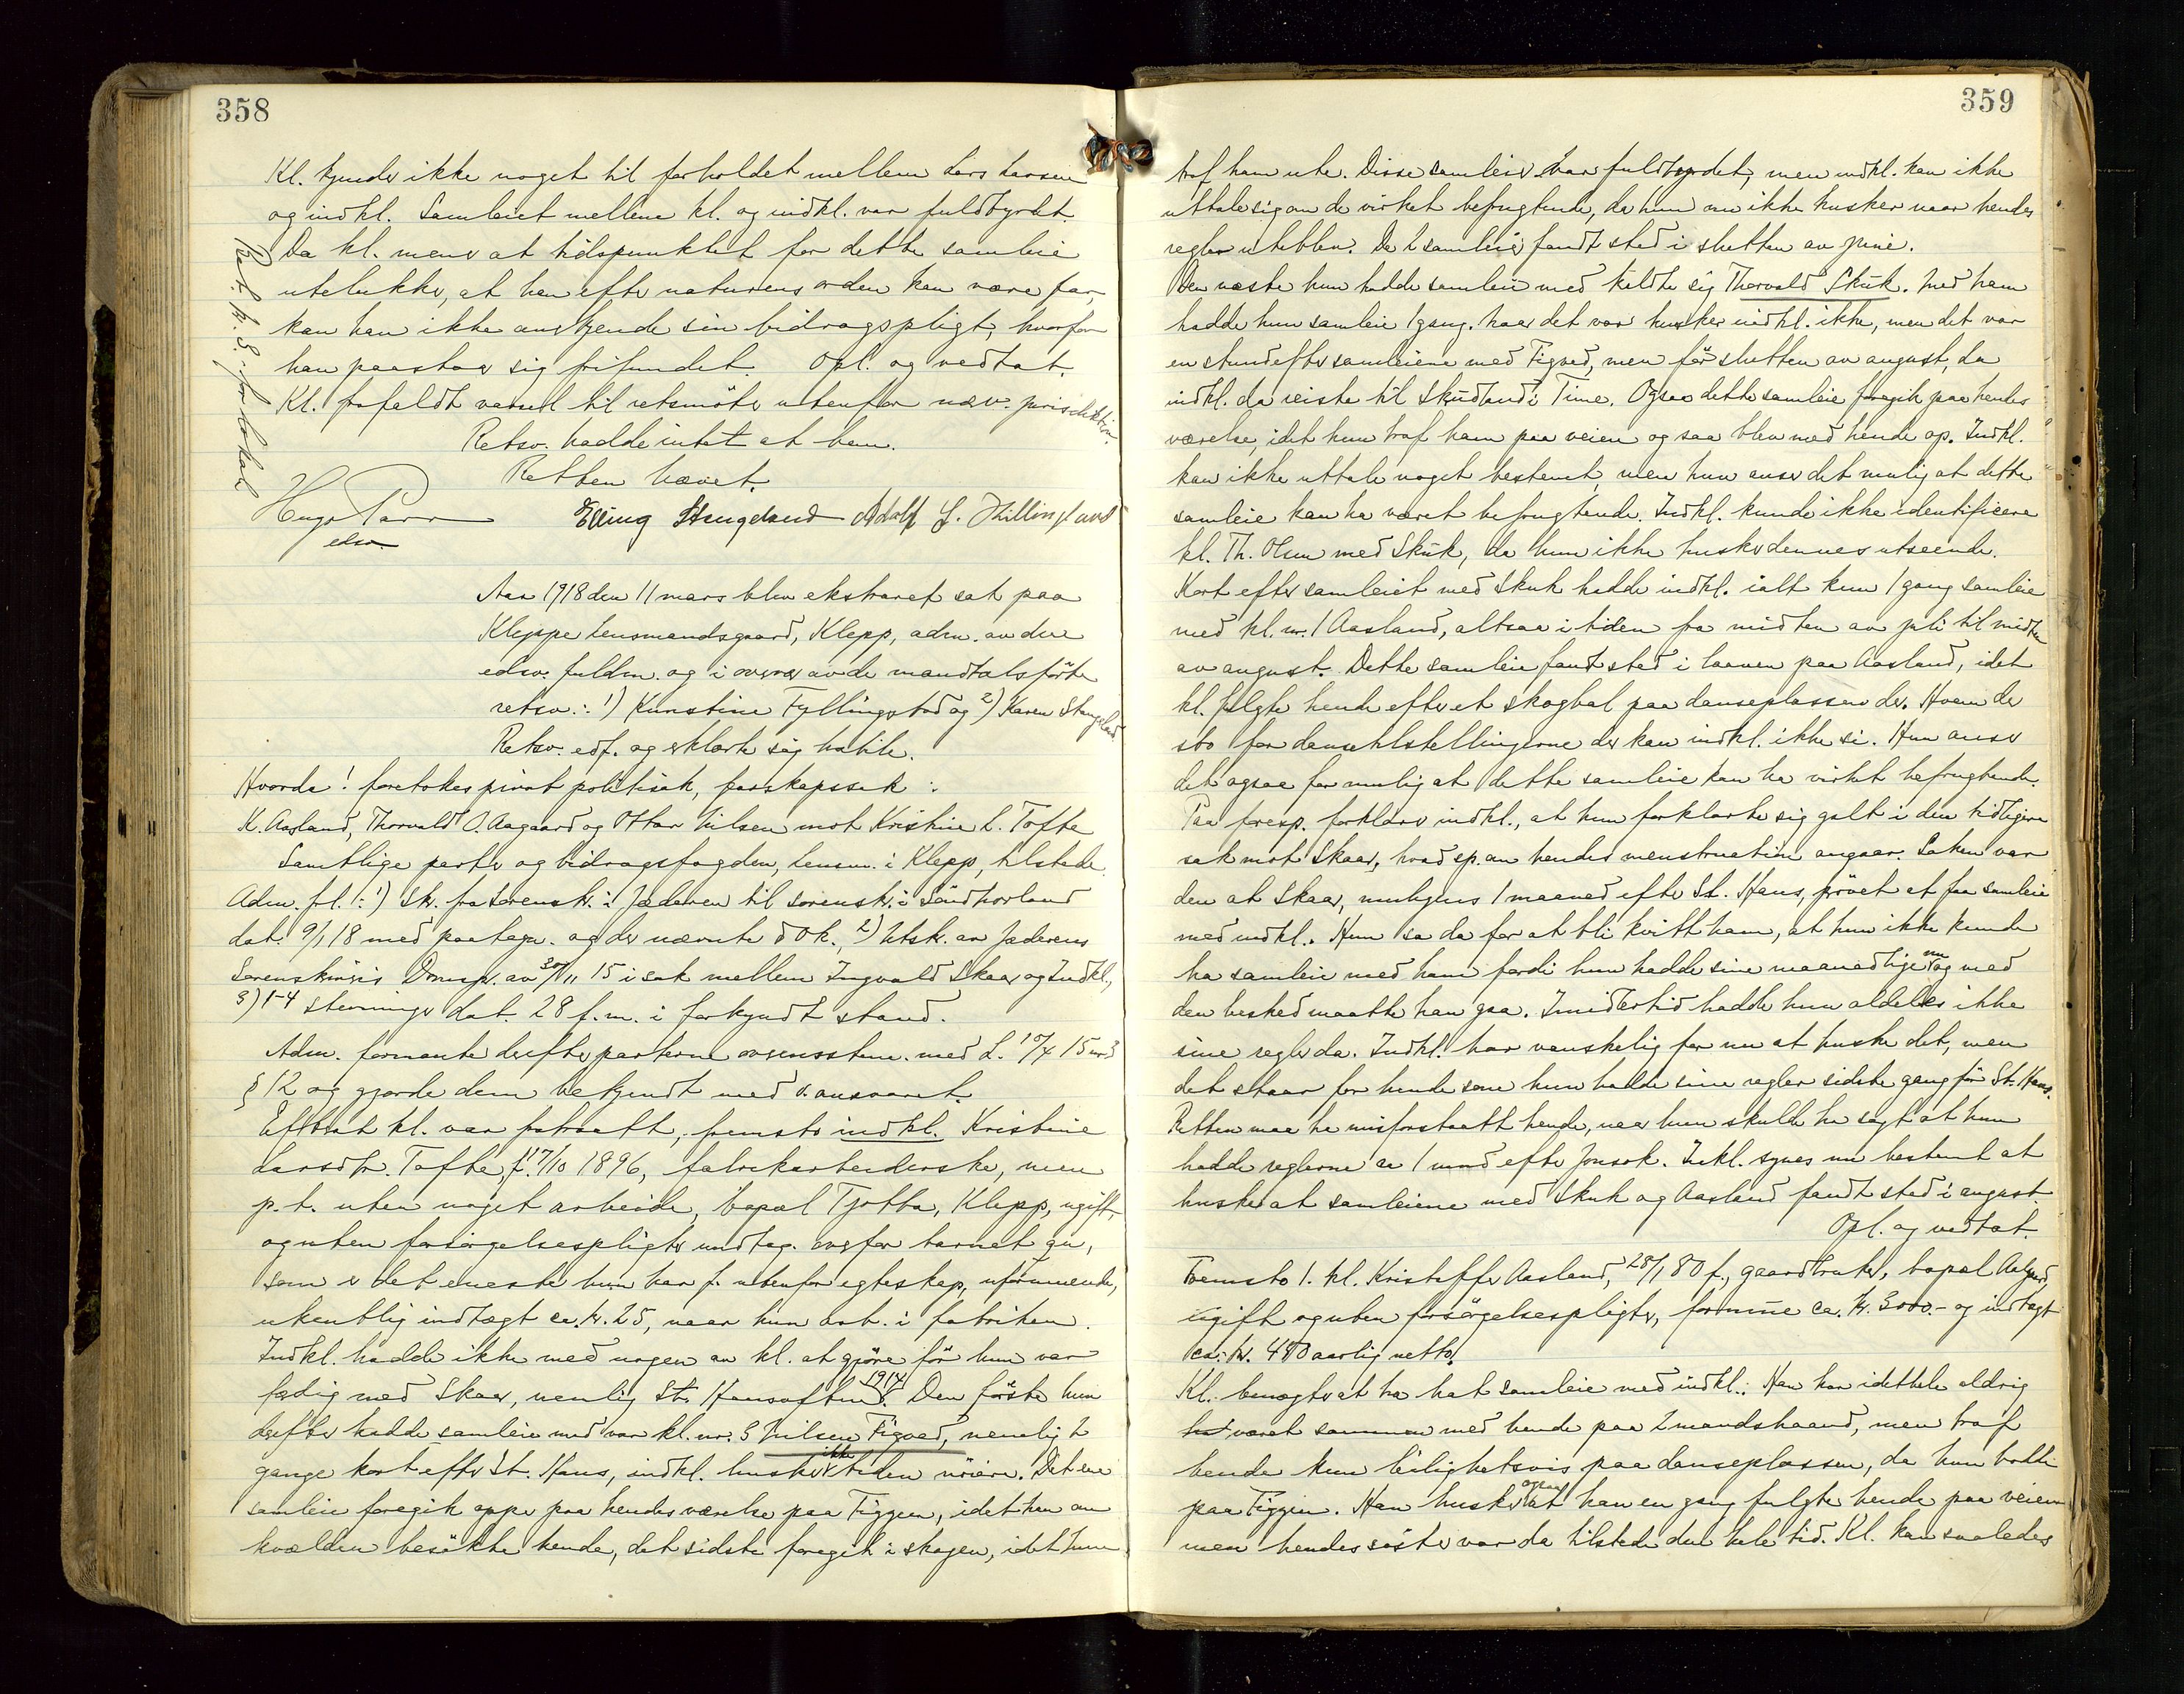 358
Kl. kjender ikke noget til forholdet mellem Lars Larsen
og indkl. Samleiet mellem kl. og indkl. var fuldbyrdet.
Da kl. mener at tidspunktet for dette samleie
utelukker, at han efter naturens orden kan være far,
kan han ikke anerkjende sin bidragspligt, hvorfor
han paastaar sig frifundet. Opl. og vedtat.
Kl. frafaldt varsel til retsmöter utenfor næv. jurisdiktion.
Retsv. hadde intet at bem.
Retten hævet.
Hugo Parr
edsv.
Elling Stangeland Adolf G. Hillingland
Aar 1918 den 11 mars blev ekstraret sat paa
Kleppe lensmandsgaard, Klepp, adm. av den
edsv. fuldm. og i overvær av de mandtalsförte
retsv.: 1) Kunstine Fyllingstad og 2) Karen Stangeland
Retsv. edf. og erklærte sig habile.
Hvorda! foretokes privat politisak, farskapssak:
K. Aasland, Thorvald O. Aagaard og Ottar Nilsen mot Kristine L. Tofte
Samtlige parter og bidragsfogden, lensm. i Klepp, tilstede.
Adm. frl.: 1) Skr. fra Sorenskr. i Jæderen til sorenskr. i Söndhorland
dat. 9/1 18 med paategn. og der nævnte dok., 2) Utskr. av Jæderens
Sorenskriveris Domspr. av 30/11 15 i sak mellem Ingvald Skaar og Indkl.,
3) 1-4 stevninger dat. 28 f.m. i forkyndt stand.
Adm. formante derefter parterne overensstem. med L. 10/4 15 nr 3
§ 12 og gjorde dem bekjendt med v. ansvaret.
Efterat kl. var fratraatt, fremsto indkl. Kristine
Larsdtr. Tofte, f. 17/10 1896, fabrikarbeiderske, men
p.t. uten noget arbeide, bopæl Tjotta, Klepp, ugift,
og uten forsörgelsespligter undtag. overfor barnet gu,
som er det eneste hun har f. utenfor egteskap, uformuende,
ukentlig indtægt ca. kr. 25, naar hun arb. i fabriken.
Indkl. hadde ikke med nogen av kl. at gjöre för hun var
færdig med Skaar, nemlig St. Hansaften 1914. Den förste hun
derefter hadde samleie med var kl. nr. 3 Nilsen Figved, nemlig 2
gange kort efter St. Hans, indkl. husker ikke tiden nöiere. Det ene
samleie foregik oppe paa hendes værelse paa Figgen, idet han om
kvælden besökte hende, det sidste foregik i skogen, idet hun
359
traf ham ute. Disse samleier var fuldbyrdet, men indkl. kan ikke
uttale sig om de virket befrugtende, da hun nu ikke husker naar hendes
regler uteblev. De 2 samleier fandt sted i slutten av juni.
Den næste hun hadde samleie med kaldte sig Thorvald Skuk. Med ham
hadde hun samleie 1 gang. Naar det var husker indkl. ikke, men det var
en stund efter samleiene med Figved, men för slutten av august, da
indkl. da reiste til Skudland i Time. Ogsaa dette samleie foregik paa hendes
værelse, idet hun traf ham paa veien og saa blev med hende op. Indkl.
kan ikke uttale noget bestemt, men hun anser det mulig at dette
samleie kan ha været befrugtende. Indkl. kunde ikke identificere
kl. Th. Olsen med Skuk, da hun ikke husker dennes utseende.
Kort efter samleiet med Skuk hadde indkl. ialt kun 1 gang samleie
med kl. nr. 1 Aasland, altsaa i tiden fra midten av juli til midten
av august. Dette samleie fandt sted i laaven paa Aasland, idet
kl. fulgte hende efter et skogbal paa danseplassen der. Hvem der
sto for dansetilstellingerne der kan indkl. ikke si. Hun anser
det ogsaa for mulig at dette samleie kan ha virket befrugtende.
Paa foresp. forklarer indkl., at hun forklarte sig galt i den tidligere
sak mot Skaar, hvad sp. om hendes menstruation angaar. Saken var
den at Skaar, muligens 1 maaned efter St. Hans, prövet at faa samleie
med indkl. Hun sa da for at bli kvitt ham, at hun ikke kunde
ha samleie med ham fordi hun hadde sine maanedlige nu og med
den besked maatte han gaa. Imidlertid hadde hun aldeles ikke
sine regler da. Indkl. har vanskelig for nu at huske det, men
det staar for hende som hun hadde sine regler sidste gang för St. Hans.
Retten maa ha misforstaatt hende, naar hun skulde ha sagt at hun
hadde reglerne ca 1 mnd efter Jonsok. Inkl. synes nu bestemt at
huske at samleiene med Skuk og Aasland fandt sted i august.
Opl. og vedtat.
Fremsto 1. kl. Kristoffer Aasland, 28/1 80 f., gaardbruker, bopæl Aalgaard,
ugift og uten forsörgelsespligter, formue ca. kr. 3000.- og indtægt
ca. kr. 480 aarlig netto.
Kl. benegter at ha hat samleie med indkl.: Han har idethele aldrig
været sammen med hende paa 2mandshaand, men traf
hende kun leilighetsvis paa danseplassen, da hun bodde
paa Figgen. Han husker ogsaa at han en gang fulgte hende paa veien
men hendes söster var da tilstede den hele tid. Kl. kan saaledes